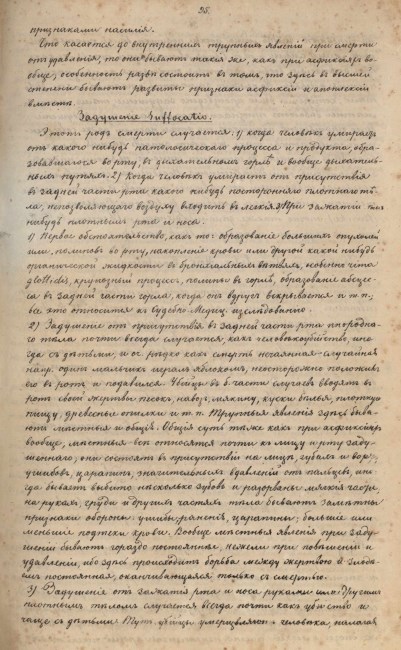 95.
признаками насилія.
Что касается до внутреннихъ трупныхъ явленій при смерти
отъ удавленія, то они бываютъ такія же, какъ при асфиксіяхъ во-
обще, особенность разве состоитъ въ томъ, что здѣсь въ высшей
степени бываютъ развиты признаки асфиксіи и апоплексіи
вмѣстѣ.
Задушеніе Suffocatio.
Этотъ родъ смерти случается: 1) когда человѣкъ умираетъ
отъ какого нибудь патологическаго процесса и продукта, обра-
зовавшагося во рту, въ дыхательномъ горлѣ и вообще дыхатель-
номъ путямъ. 2) Когда человѣкъ умираетъ отъ присутствія
въ задней части рта какого нибудь посторонняго плотнаго тѣ-
ла, непозволяющаго воздуху входить въ легкія. 3) При зажатіи чѣмъ
нибудь плотнымъ рта и носа.
1) Первое обстоятельство, какъ то: образованіе большихъ опухолей
или полиповъ во рту, накопленіе крови или другой какой нибудь
органической жидкости въ бронхіальныхъ вѣтвяхъ,
glottidis, крупозный процессъ, полипы въ горлѣ, образованіе абсцес-
са въ задней части горла, когда онъ вдругъ вскрывается и т. п.,
все это относится къ судебно-медиц. изслѣдованію.
2) Задушеніе отъ присутствія въ задней части рта инородна-
го тѣла почти всегда случается, какъ человѣкоубійство, ино-
гда съ дѣтьми, и оч. рѣдко какъ смерть нечаянная-случайная
напр. одинъ мальчикъ игралъ яблокомъ, неосторожно положилъ
его въ ротъ и подавился. Убійцы въ б. части случаевъ вводятъ въ
ротъ своей жертвы песокъ, навозъ, мякину, куски бѣлья, плотную
пищу, древесные опилки и т. п. Трупныя явленія здѣсь быва-
ютъ мѣстныя и общія. Общія суть тѣже какъ при асфиксіяхъ
вообще, мѣстныя всѣ относятся почти къ лицу и рту заду-
шеннаго, они состоятъ въ присутствіи на лицѣ, губахъ и
царапинъ, значительныхъ вдавленій отъ пальцевъ, ино-
гда бываетъ выбито несколько зубовъ и разорваны мягкія части
на рукахъ, груди и другихъ частяхъ тѣла бываютъ замѣтны
признаки обороны: ушибы, раненія, царапины; большіе или
меньшіе подтеки крови. Вообще мѣстныя явленія при заду-
шеніи бываютъ гораздо постояннѣе, нежели при повѣшеніи и
удавленіи, ибо здѣсь происходитъ борьба между жертвою и злодѣ-
емъ постоянная, оканчивающаяся только съ смертью.
3) Задушеніе отъ зажатія рта и носа руками или другимъ
плотнымъ тѣломъ случается всегда почти какъ убійство и
чаще съ дѣтьми. Тутъ убійцы умерщвляютъ человѣка, налагая